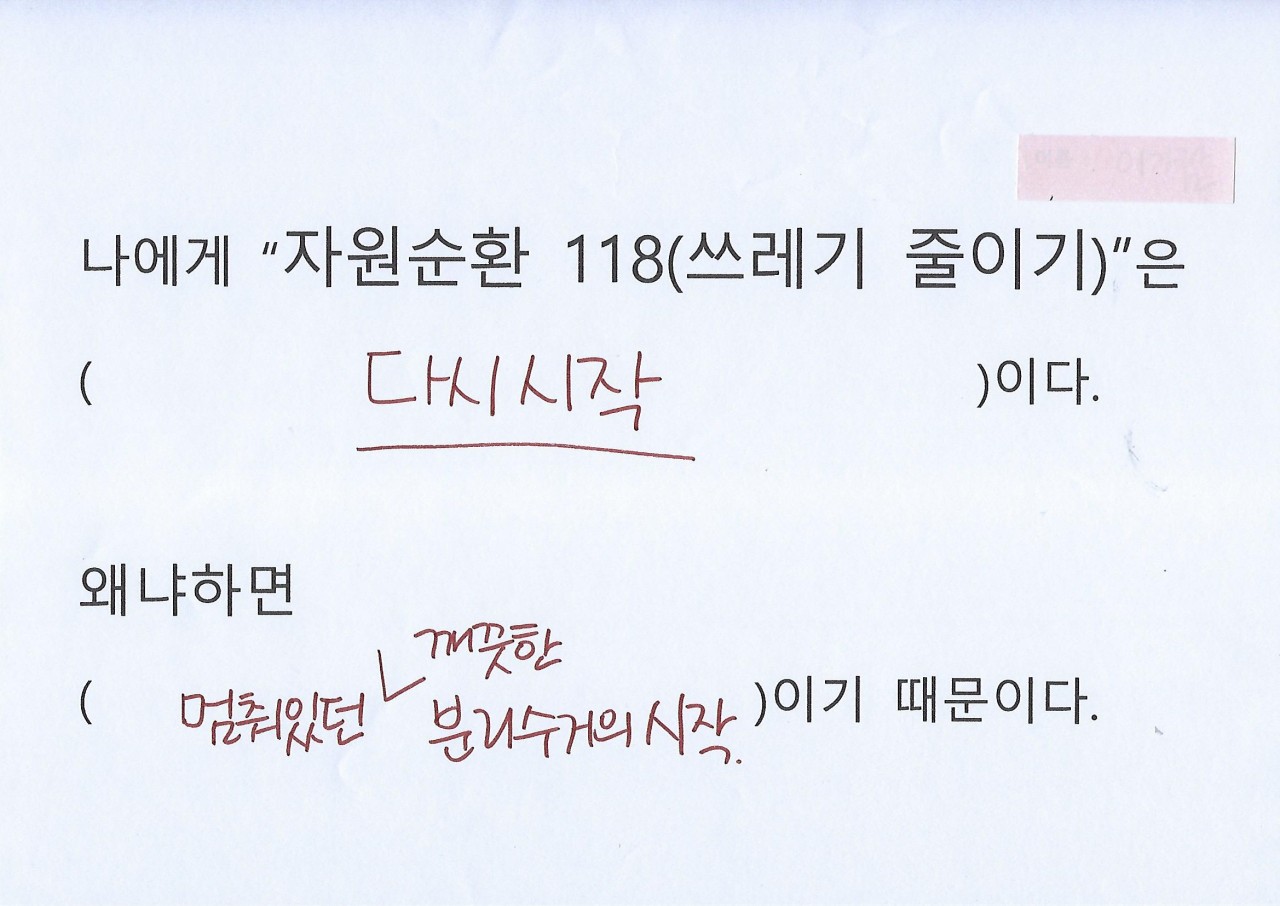 나에게 “자원순환 118(쓰레기 줄이기)”은
( 다시 시작 )이다.
왜냐하면
깨끗한
( 멈춰있던 분리수거의 시작. )이기 때문이다.